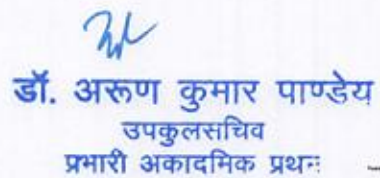 डॉ. अरूण कुमार पाण्डेय
उपकुलसचिव
प्रभारी अकादमिक प्रथनः